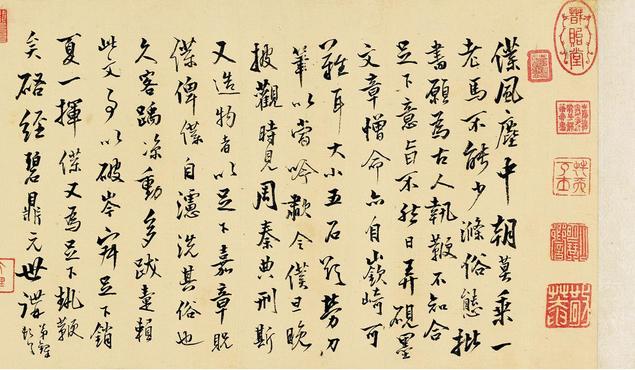 僕風塵中朝莫乘一
老馬不能少滌俗態批
書願為古人執鞭不知合
足下意旨不然日弄硯墨
文章憎命亦自嶔崎可
難耳大小五石勞刀
筆以當吟令僕旦晚
披觀時見周秦典刑斯
又造物者以足下嘉章貺
僕俾僕自濾洗其俗也
久客踽涼動多跋疐賴
此文可以破岑寂足下銷
夏一揮僕又為足下執鞭
矣硌經碧鼎元世講弟鐸